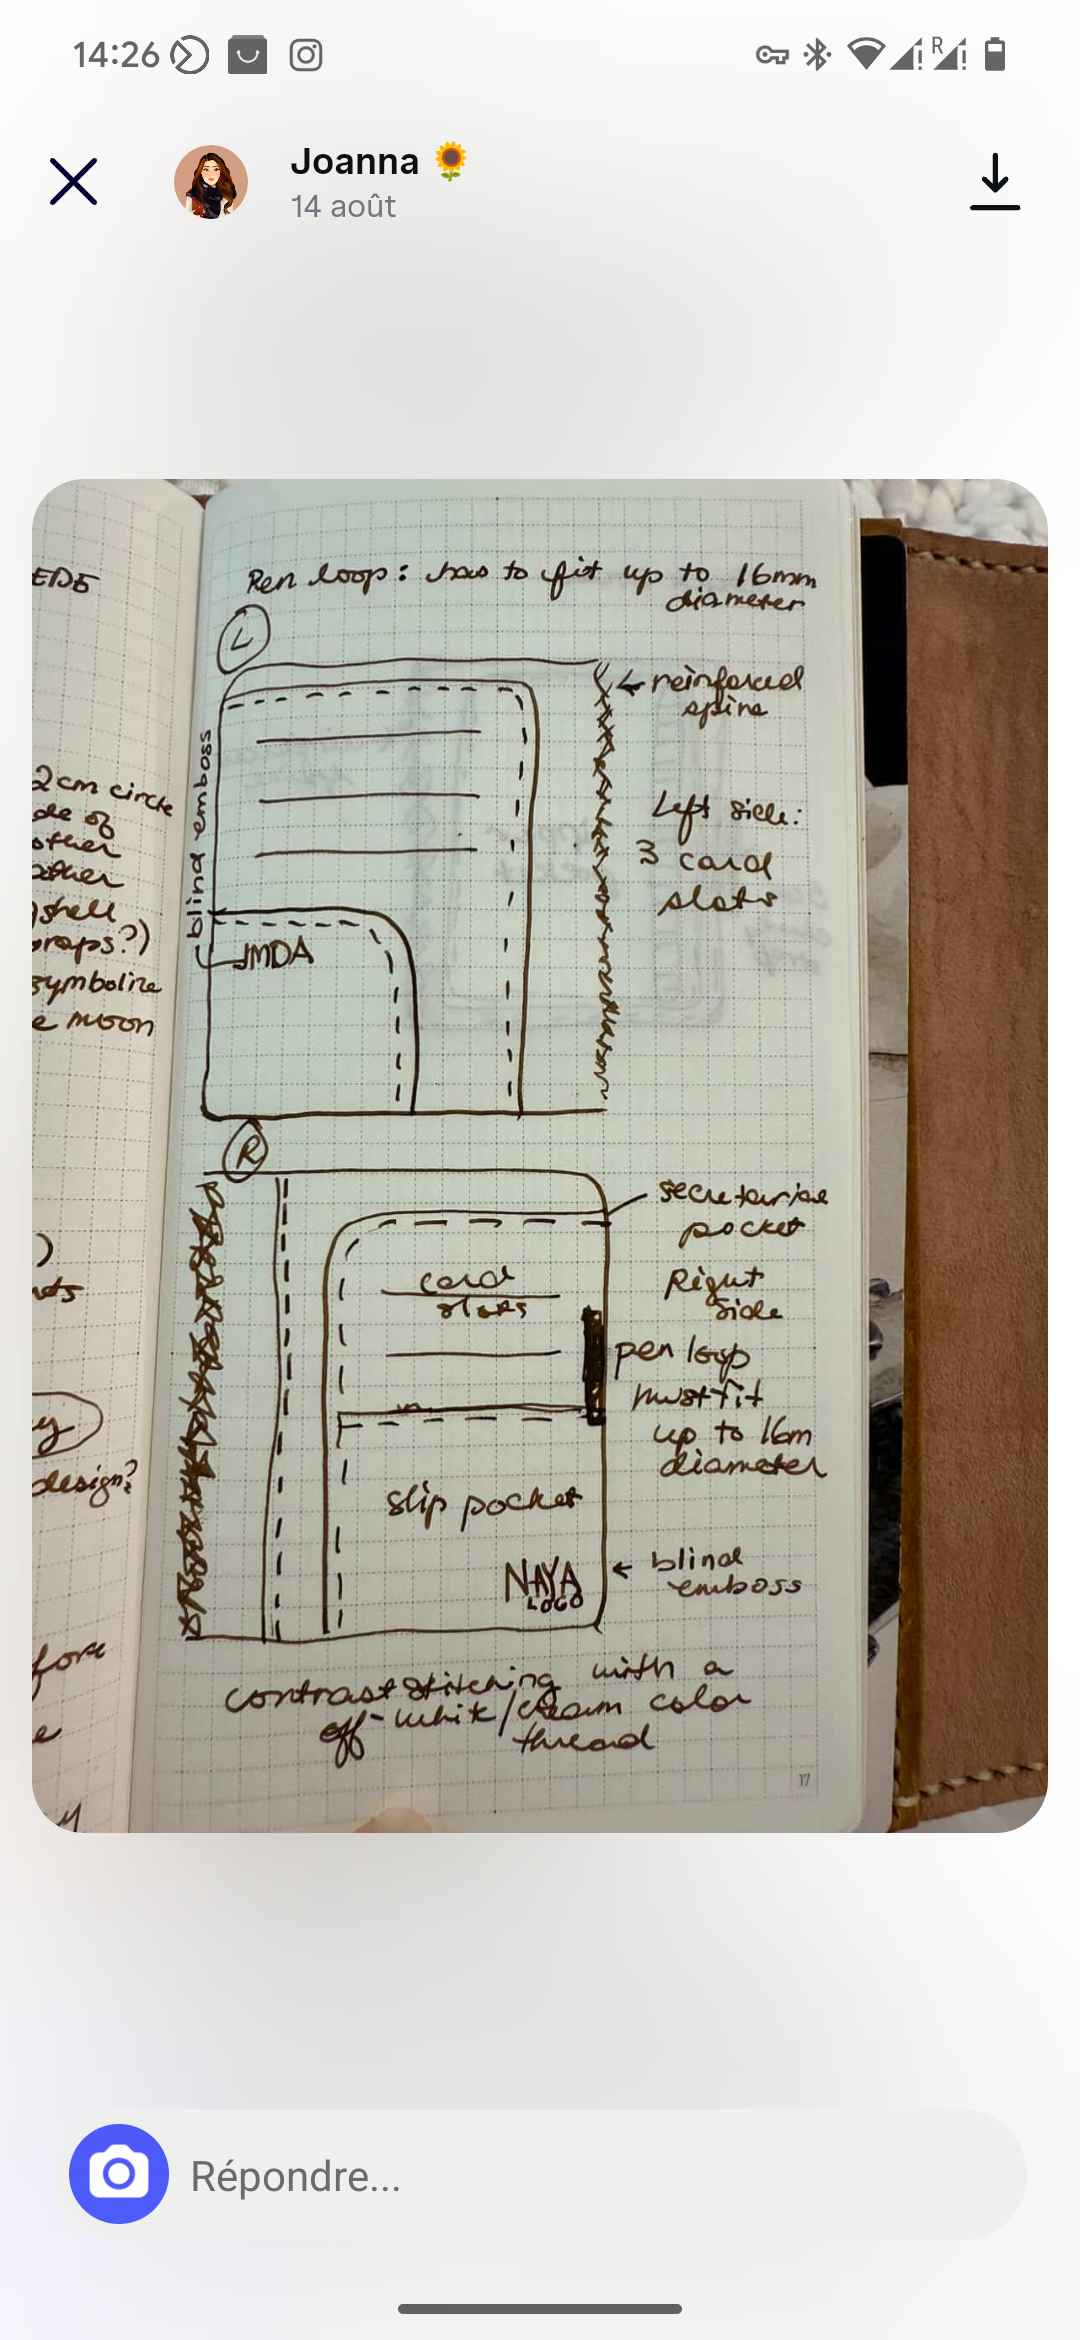 14:26
R
Joanna 🌻
14 août
EDE
2 cm circle
de of
other
ather
shell
raps?)
symbolize
e moon
)
nts
y
design?
fore
e
y
Pen loop: has to fit up to 16mm
diameter
L
← reinforced
spine
blind emboss
Left side:
3 card
slots
JMDA
R
secretarial
pocket
card
slots
Right
side
pen loop
must fit
up to 16m
diameter
slip pocket
NAYA
LOGO
← blind
emboss
contrast stitching with a
off-white/cream color
thread
17
Répondre...